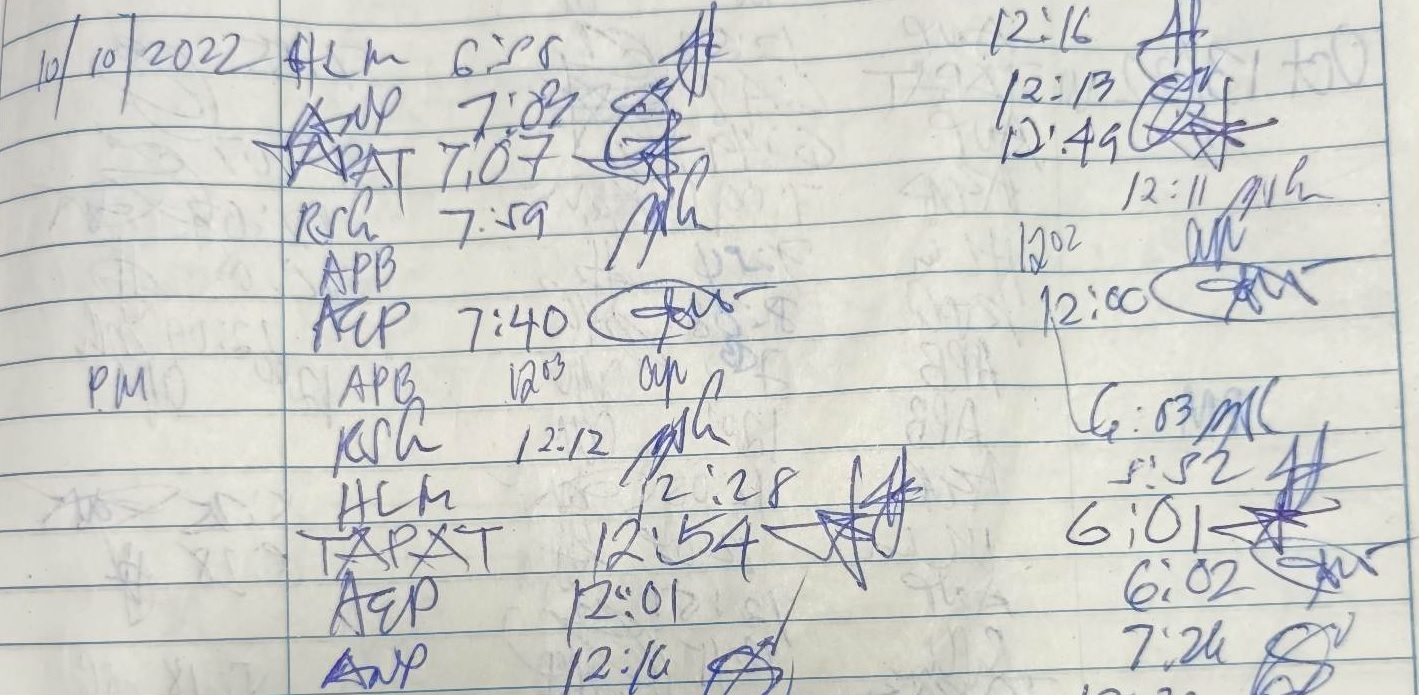 10/10/2022 HLM 6:58 12:16
ANP 7:03 12:13
TAPAT 7:07 12:49
RSG 7:59 12:11
APB 1202 ap
AEP 7:40 12:00
PM APB 1203 ap
RSG 12:12 6:03
HLM 12:28 5:52
TAPAT 12:54 6:01
AEP 12:01 6:02
ANP 12:16